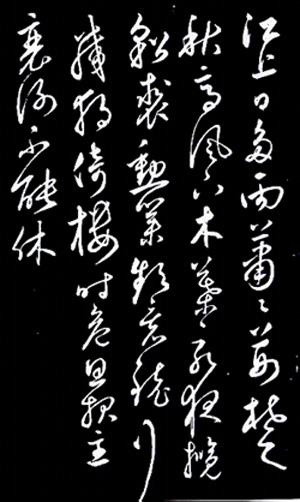 江上日多雨蕭〻荊楚
秋高風下木葉永夜攬
貂裘勳業頻看鏡行
藏獨倚樓時危思報主
衰謝不能休